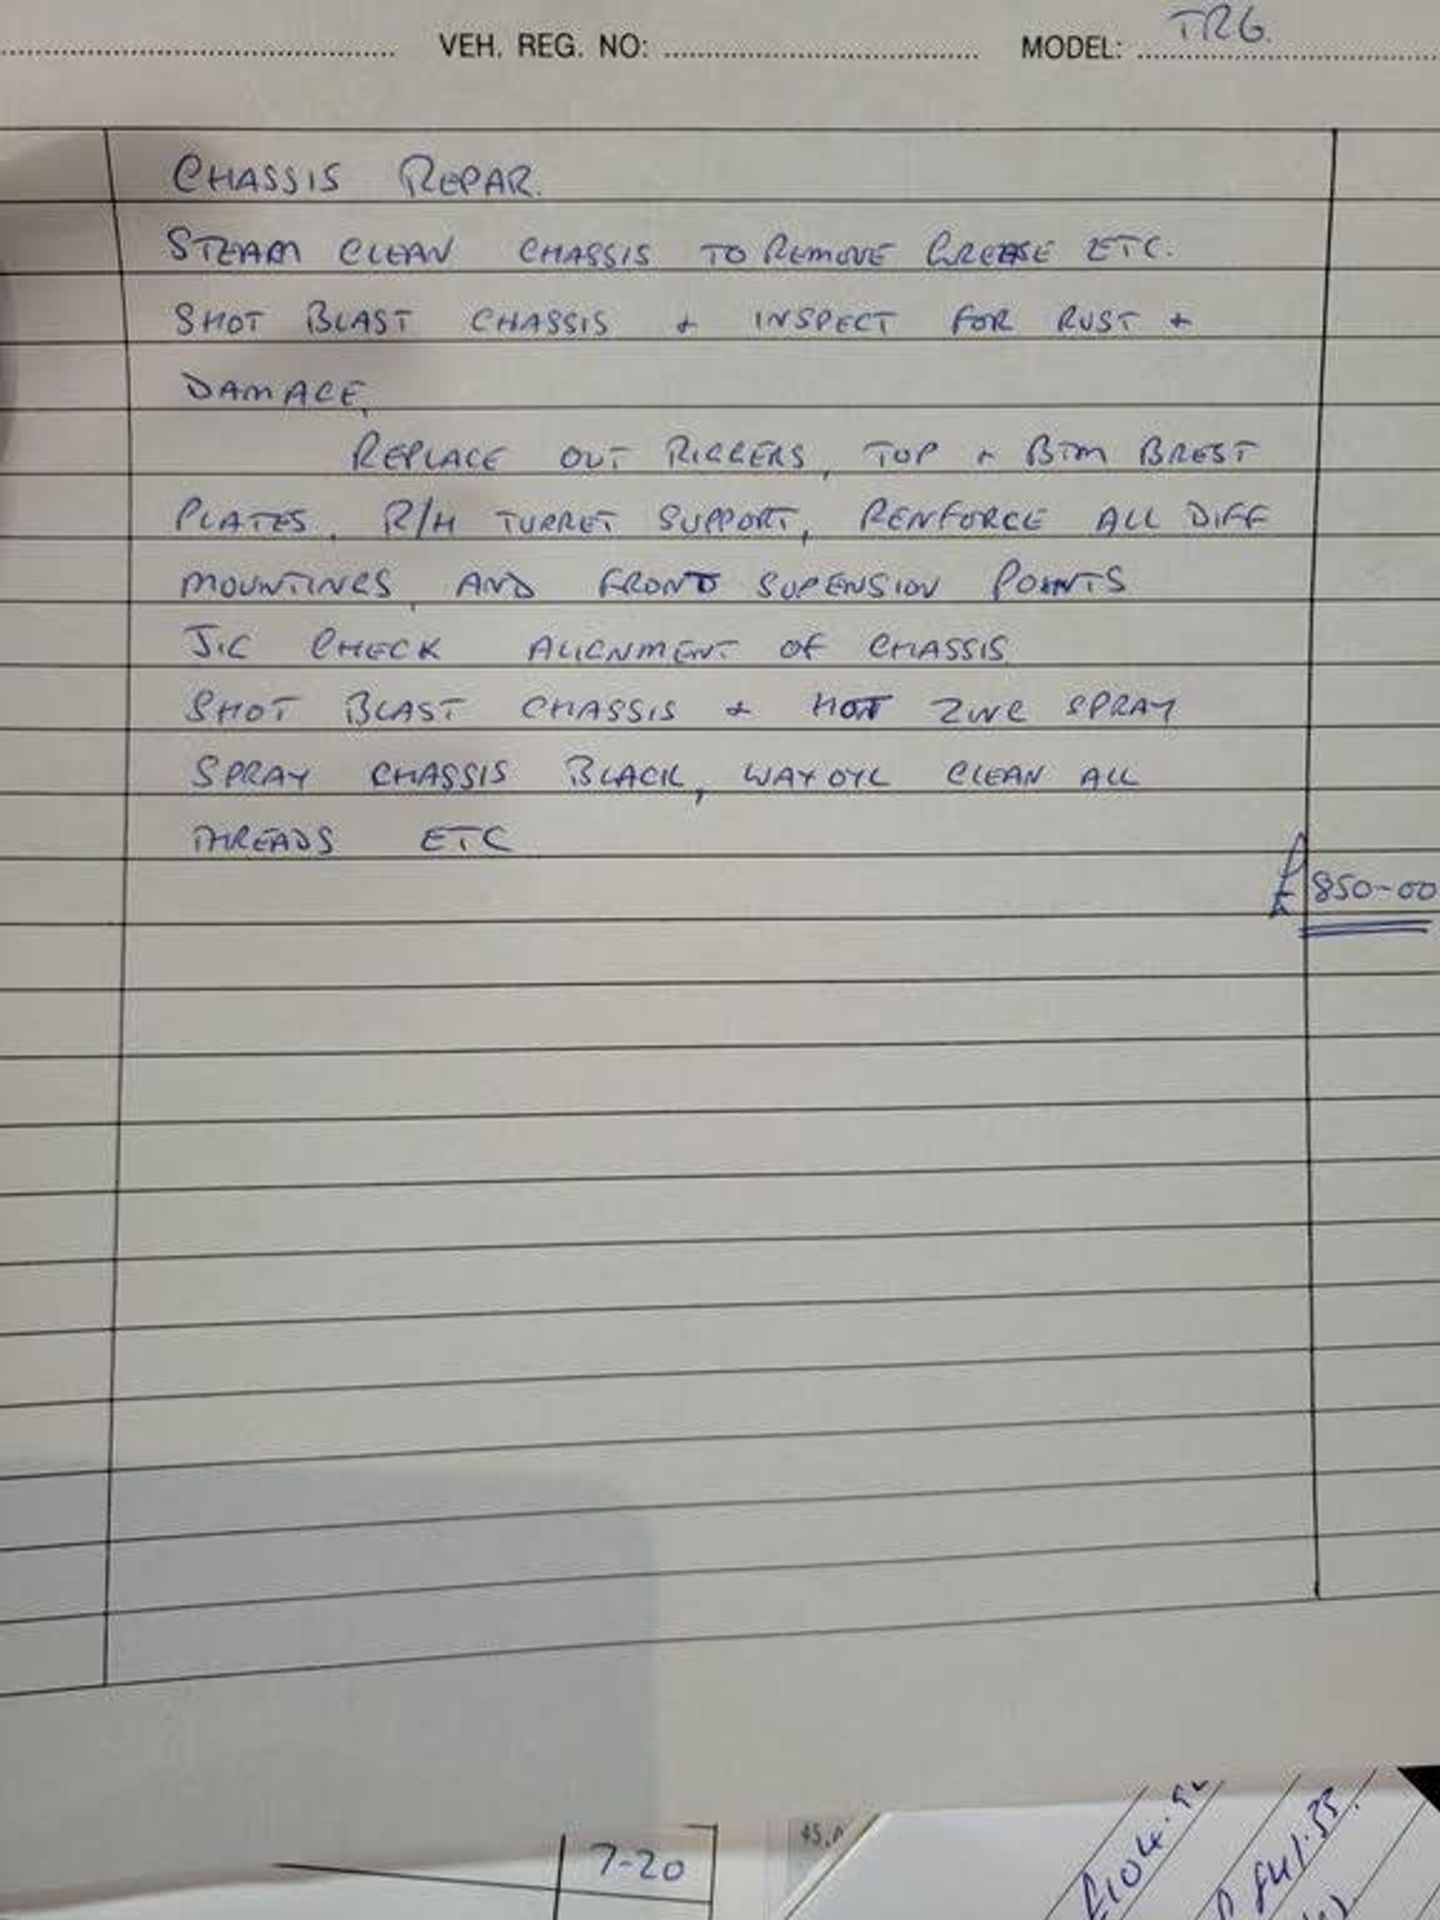 VEH. REG. NO: MODEL: TR6.
CHASSIS REPAR.
STEAM CLEAN CHASSIS TO REMOVE GREASE ETC.
SHOT BLAST CHASSIS + INSPECT FOR RUST +
DAMAGE.
REPLACE OUT RIGGERS, TOP + BTM BREST
PLATES, R/H TURRET SUPPORT, RENFORCE ALL DIFF
MOUNTINGS, AND FRONT SUPENSION POINTS
JIG CHECK ALIGNMENT OF CHASSIS
SHOT BLAST CHASSIS + HOT ZINC SPRAY
SPRAY CHASSIS BLACK, WAXOYL CLEAN ALL
THREADS ETC
£850-00
7-20